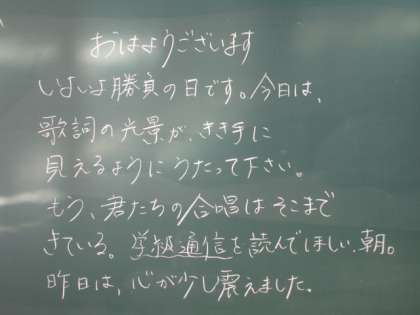 おはようございます
いよいよ勝負の日です。今日は、
歌詞の光景が、きき手に
見えるようにうたって下さい。
もう、君たちの合唱はそこまで
きている。学級通信を読んでほしい、朝。
昨日は、心が少し震えました。